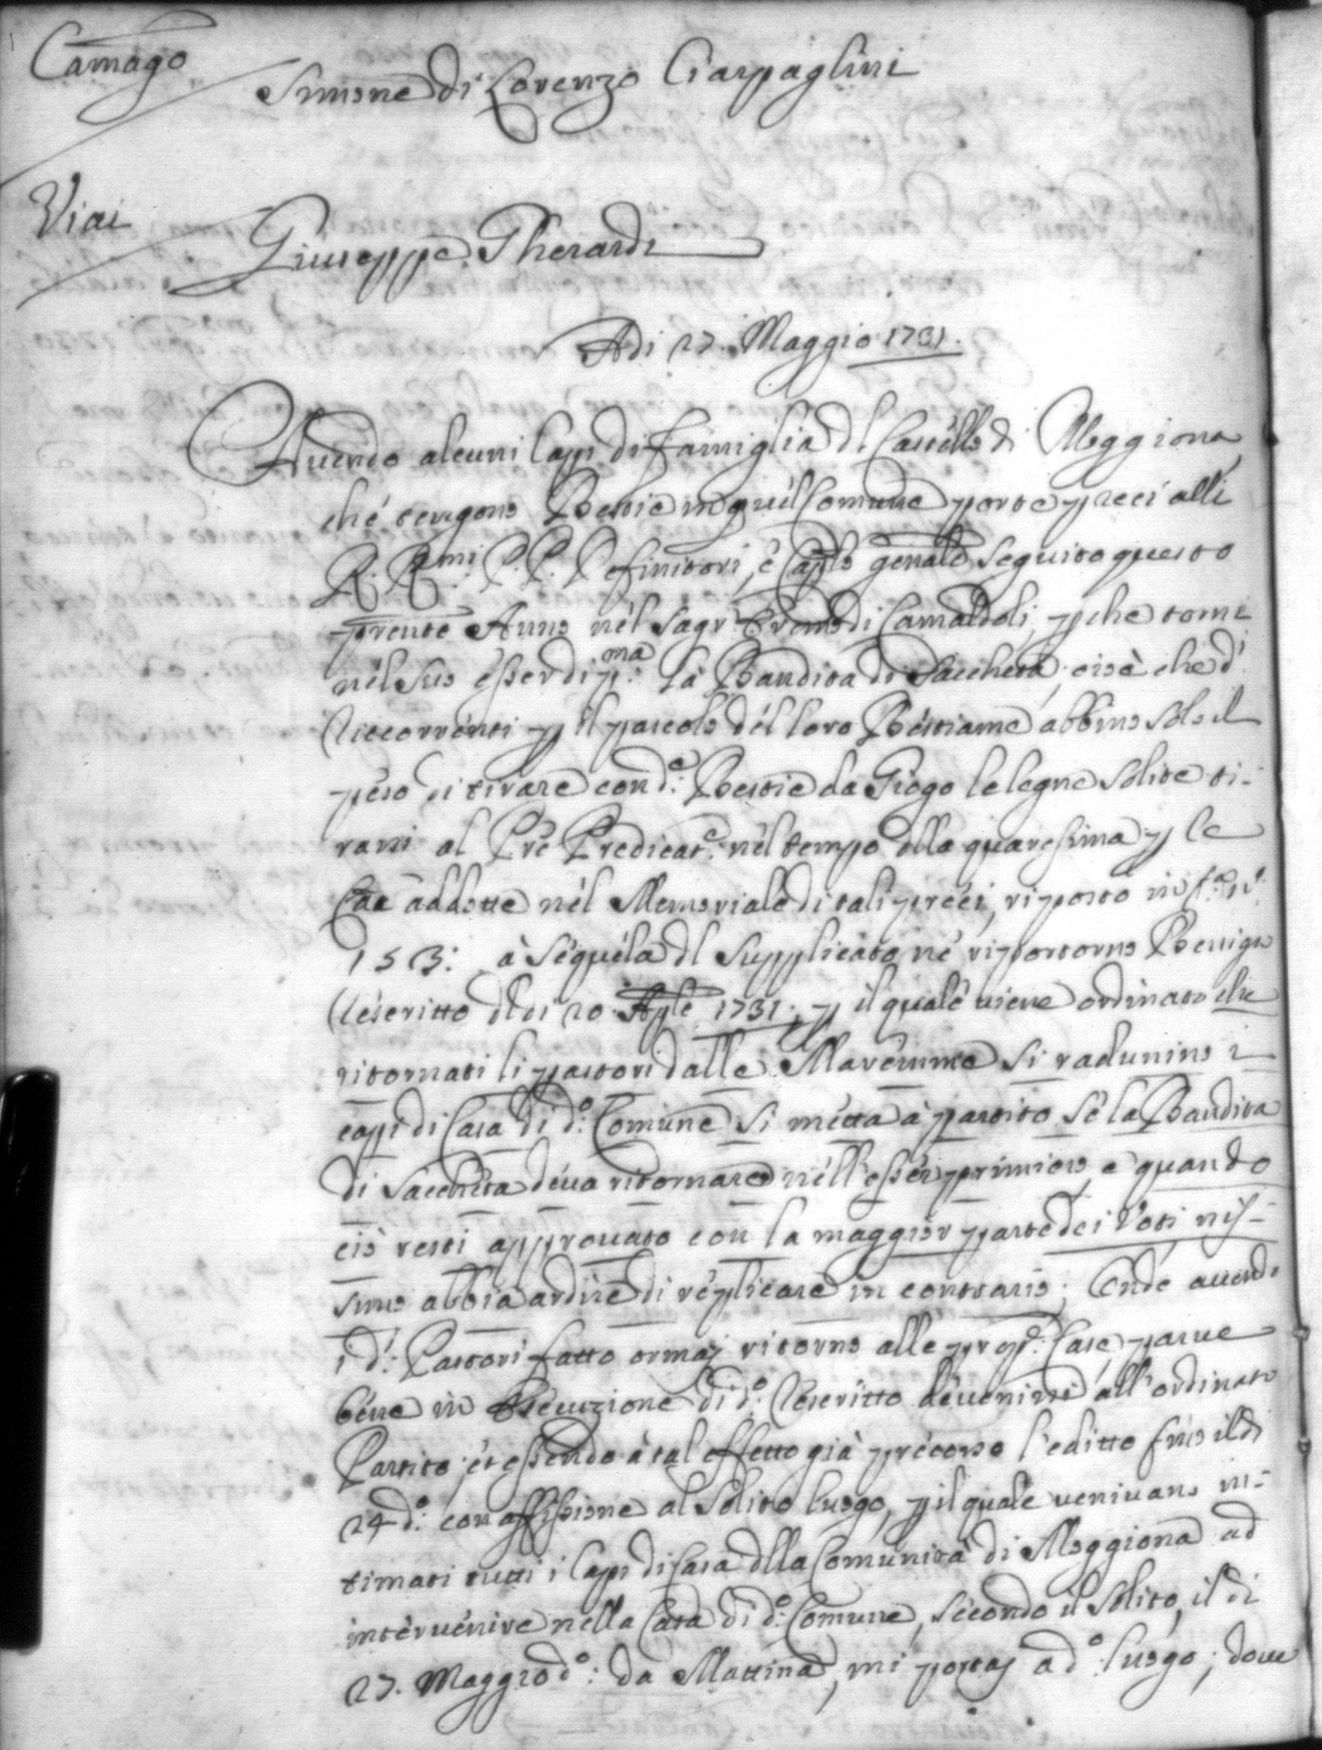 Camago
Simone di Lorenzo Ciarpaglini
Viai
Giuseppe Gherardi
Adi 27. Maggio 1731.
Avendo alcuni Capi di famiglia dl Castello di Moggiona
che tengono Bestie in quel Comune porte preci alli
R. Rmi. P.P. Definitori, e Caplo genale seguito questo
prente Anno nel Sagr. Eremo di Camaldoli, p che torni
nel suo esser di pma. la Bandita di Saccheta, cioè che d.
Riccorrenti p il pascolo del loro Bestiame abbino solo il
peso di tirare con de. Bestie da Giogo le legne solite ti-
rarsi al Pre Predicate. nel tempo dlla quaresima p le
Cae addotte nel Memoriale di tali preci, riposto in
153: à sequela dl supplicato ne riportorno Benigno
Rescritto dl dì 20 Aple 1731; p il quale viene ordinato che
ritornati li pastori dalle Maremme si radunino i
capi di Casa di do. Comune si metta à partito se la Bandita
di Saccheta deva ritornare nell'esser primiero, e quando
ciò resti approvato con la maggior parte dei Voti nis-
suno abbia ardire di replicare in contrario; Onde avendo
i d. Pastori fatto ormaj ritorno alle prope. Case parve
bene in esecuzione di do. Rescritto devenirsi all'ordinato
Partito; et essendo à tal effetto già precorso l'editto fino il dì
24 do. con affissione al solito luogo, p il quale venivano in-
timati tutti i Capi di Casa dlla Comunità di Moggiona ad
intervenire nella Casa di do. Comune, secondo il solito, il dì
27. Maggio do: da Mattina, mi portaj a do. luogo; dove